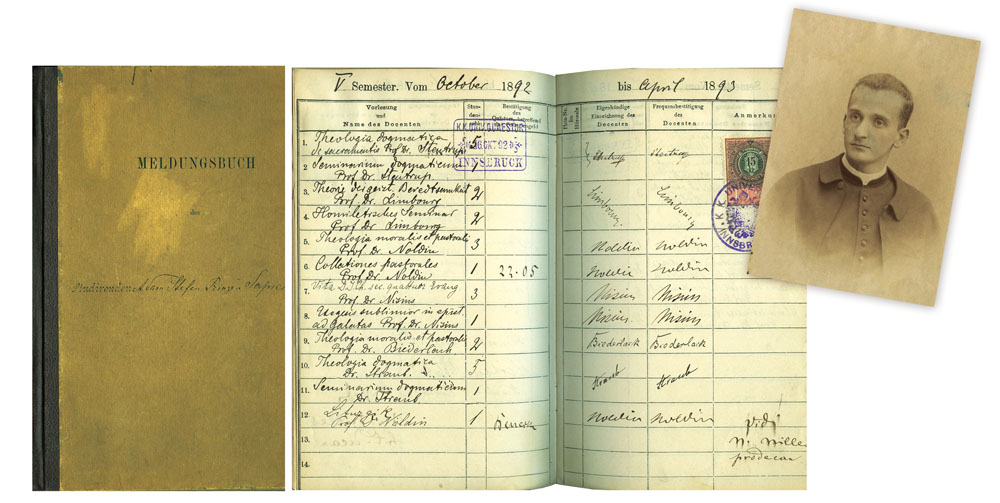 MELDUNGSBUCH
des
Studirenden Adam Stefan Prinzen Sapieha
V Semester. Vom October 1892
bis April 1893
Vorlesung
und
Name des Docenten
Stun-
den
Bestätigung
der
Quästur, betreffend
Eigenhändige
Einzeichnung des
Docenten
Frequenzbestätigung
des
Docenten
Anmerkun
K.K. UNIV. QUAESTUR
26 OKT 92
INNSBRUCK
1. Theologia dogmatica 5
de sacramentis Prof. Dr. Stentrup
2. Seminarium dogmaticum 1
Prof. Dr. Stentrup
Stentrup Stentrup
15
K. K. UNIVERS
INNSBR
3. Theorie der geistl. Beredtsamkeit 2
Prof. Dr. Limbourg
Limbourg Limbourg
4. Homiletisches Seminar 2
Prof Dr Limbourg
5. Theologia moralis et pastoralis 3 Noldin Noldin
Prof. Dr. Noldin
6. Collationes pastorales 1 22.05 Noldin Noldin
Prof. Dr. Noldin
7. Vita D. J. Ch. sec. quattuor Evang 3 Nisius Nisius
Prof. Dr. Nisius
8. Exegesis sublimior in epist. 1 Nisius Nisius
ad Galatas Prof. Dr. Nisius
9. Theologia moralis et pastoralis 2 Biederlack Biederlack
Prof. Dr. Biederlack
10. Theologia dogmatica 5
Dr. Straub
Straub Straub
11. Seminarium dogmaticum 1
Dr. Straub
12. Liturgik 1 Noldin Noldin
Prof Dr Noldin
13.
14.
vidi
N. Nilles
prodecan